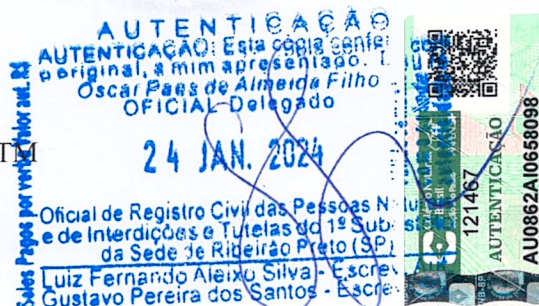 AUTENTICAÇÃO
AUTENTICAÇÃO: Esta cópia confer
o original, a mim apresentado.
Oscar Paes de Almeida Filho
OFICIAL Delegado
24 JAN. 2024
Oficial de Registro Civil das Pessoas N
e de Interdições e Tutelas do 1º Sub
da Sede de Ribeirão Preto (SP)
Luiz Fernando Aleixo Silva - Escrev
Gustavo Pereira dos Santos - Escre
Selos Pagos por verba
TM
Brasil
121467
AUTENTICAÇÃO
AU0862AI0650098